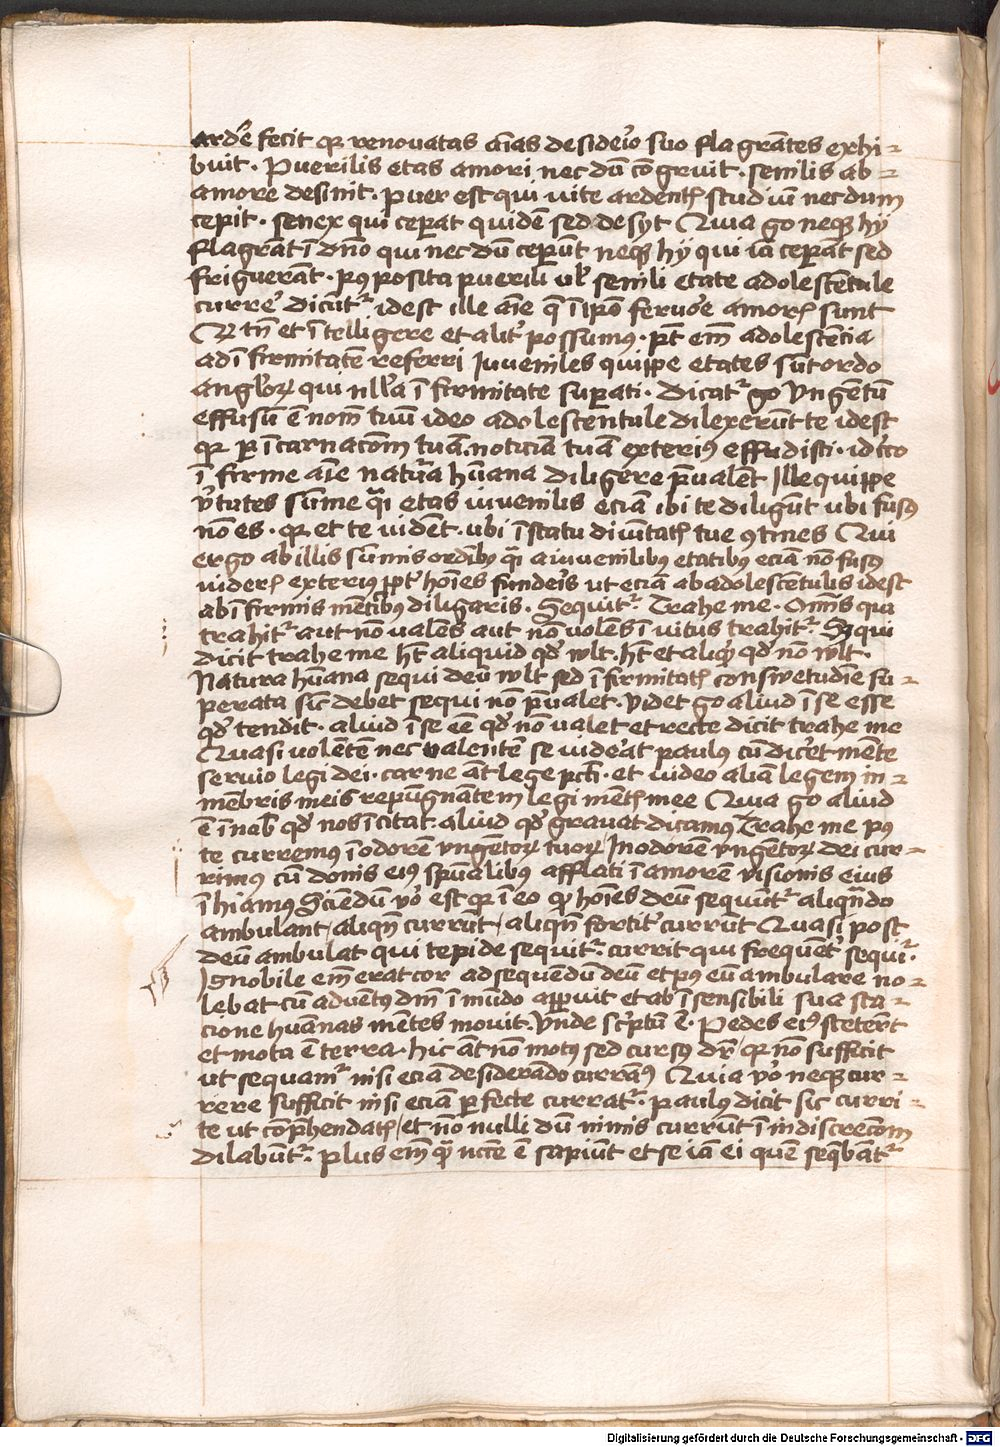 ardē fecit qꝛ renouatas aīas desideı̄o suo flagrātes exhi-
buit · Puerilis etas amori nec dū cōgruit · senilis ab-
amore desinit · puer est qui uite ardentꝭ studiū nec dum
cepit · senex qui cepat quidē sed desyt Quia go neqꝫ hÿ
flagrāt ī dn̄o qui nec dū ceperūt neqꝫ hÿ qui iā ceperāt sed
friguerāt · pꝰ posita puerili ul̕ senili etate adolescētule
currer̕ dicūt᷑ idest ille aīe q̄ ī ipō feruōe amorꝭ sunt
Qꝛ tn̄ et ītelligere et alit̕ possumꝰ · pt̄ em̄ adolescēcia
ad īfirmitatē referri Iuueniles quippe etates sūt ordo
angl̕oꝝ qui nll̕a īfirmitate sup̲ati · dicat᷑ go Vngētū
effusū ē nom̄ tuū ideo adolescentule dilexerūt te idest
qꝛ p̲ īcarnacōm̄ tuā · noticiā tuā exteriꝰ effudisti · id'cco
īfirme aīe natur̄a hūana diligere p̄ualēt Ille quippe
v̕tutes sūme q̄i etas iuuenilis eciā ibi te diligūt ubi fusꝰ
nō es · qꝛ et te vidēt · ubi ī statu diuītatꝭ tue ꝯtines Qui
ergo ab illis sūmis ordībꝰ q̄i a iuuenilibꝰ etatibꝰ eciā nō fusꝰ
viderꝭ exteriꝰ ppt̕ hoīes funderis ut eciā ab adolescētulis idest
ab īfirmis mētibꝰ diligaris · Sequit᷑ · Trahe me · Omīs qui
trahit᷑ aut nō valēs aut nō volēs īuitus trahit᷑ · Sꝫ qui
dicit trahe me hꝫ aliquid qd̕ wlt · hꝫ et aliqꝫ qd̕ nō wlt ·
Natura hūana sequi deū wlt sed īfirmitatꝭ consiwetudīe su-
perata sic̄ debet sequi nō p̄ualet · Videt go aliud ī se esse
qd̕ tendit · aliud ī se eē qd̕ nō ualet et recte dicit trahe me
Quasi uolētē nec valentē se uideāt paulus cū dic̕et mēte
seruio legi dei · carne āt lege pct̄i · et video aliā legem in-
mēbris meis repūgnātem legi mētꝭ mee Quia go aliud
ē ī nob̄ qd̕ nos īcitat · aliud qd̕ grauat dicamꝰ Trahe me pꝰ
te curremꝰ ī odorē vngētoꝝ tuoꝝ In odorē vngētoꝝ dei cur-
rimꝰ cū donis eiꝰ sp̄ualibꝰ afflati ī amorē visionis eius
īhiamꝰ Sciendū v̕o est qꝛ ī eo qd̕ hoīes deū sequūt᷑ aliqn̄do
ambulant / aliqn̄ currūt / aliqn̄ fortit̕ currūt Quasi post
deū ambulat qui tepide sequit᷑ · currit qui frequēt̕ sequit᷑ ·
Ignobile em̄ erat cor ad sequendū deū et pꝰ eū ambulare no-
lebat cū aduētꝰ dn̄i ī mūdo apparuit et ab īsensibili sua sta-
cione huānas mētes mouit · Vnde sc̕ptū ē · Pedes eiꝰ stetert̄
et mota ē terra · hic āt nō motꝰ sed cursꝰ dr̄ / qꝛ nō sufficit
ut sequam᷑ nisi eciā desiderādo currāꝰ Quia v̕o neqꝫ cur-
rere sufficit nisi eciā p̲fecte currat᷑ · paulꝰ dicit sic curri-
te ut cōp̄hendatꝭ / et nō nulli dū nimis currūt ī indiscrecōm
dilabūt᷑ · plus em̄ qꝫ ncc̄e ē sapiūt et se iā ei quē seqb̄ant᷑
Digitalisierung gefördert durch die Deutsche Forschungsgemeinschaft - DFG